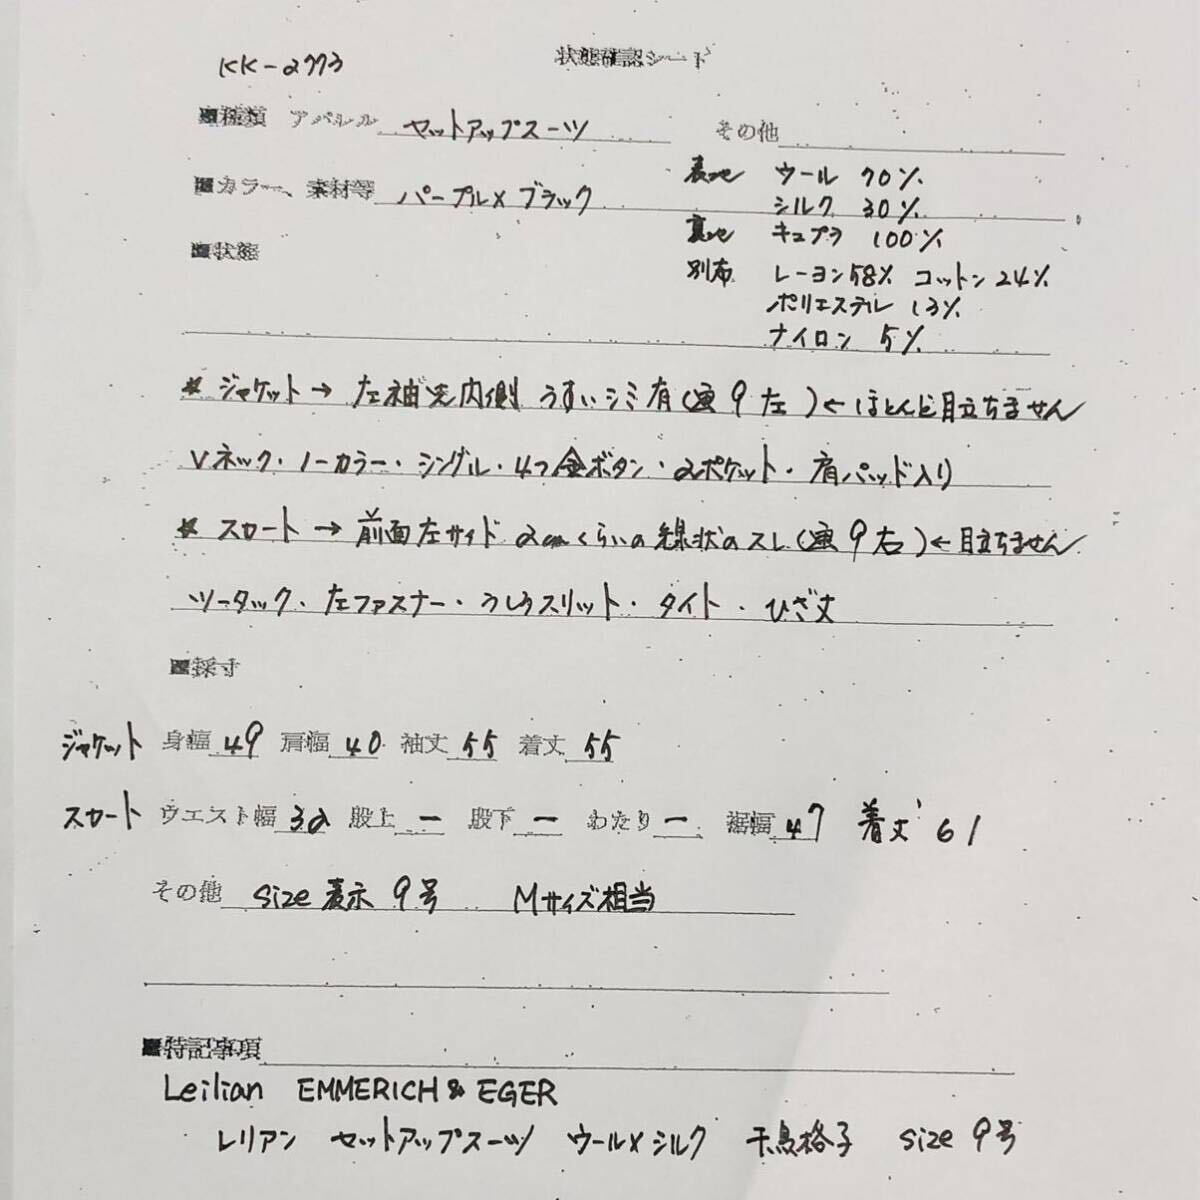 KK-2773
状態確認シート
■種類 アパレル セットアップスーツ その他
■カラー、素材等 パープル×ブラック
表地 ウール 70%
シルク 30%
裏地 キュプラ 100%
■状態
別布 レーヨン58% コットン24%
ポリエステル 13%
ナイロン 5%
* ジャケット → 左袖先内側 うすいシミ有(画9左)←ほとんど目立ちません
Vネック・ノーカラー・シングル・4つ金ボタン・2ポケット・肩パッド入り
* スカート → 前面左サイド 2cmくらいの線状のスレ(画9右)←目立ちません
ツータック・左ファスナー・うしろスリット・タイト・ひざ丈
■採寸
ジャケット 身幅 49 肩幅 40 袖丈 55 着丈 55
スカート ウエスト幅 32 股上 ー 股下 ー わたり ー 裾幅 47 着丈 61
その他 size表示 9号 Mサイズ相当
■特記事項
Leilian EMMERICH & EGER
レリアン セットアップスーツ ウール×シルク 千鳥格子 size 9号